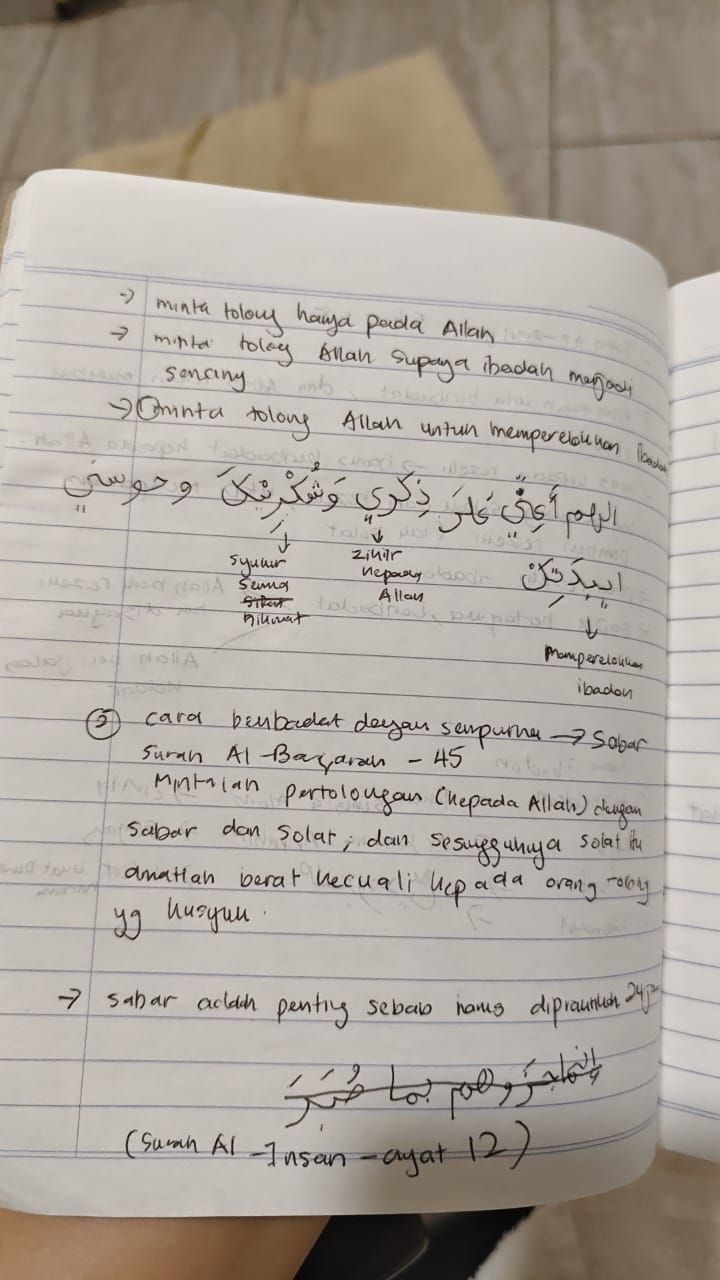 → minta tolong hanya pada Allah
→ minta tolog Allah supaya ibadah menjadi
senang
→ minta tolong Allah untuk memperelokkan ibadah
الهم أَعِنِّي عَلَى ذِكْرِي وَشُكْرِكَ وحوسني
syukur
semua
nikmat
zikir
kepada
Allah
memperelokkan
ibadah
⑤ cara beribadat dengan sempurna → sabar
Surah Al-Baqarah - 45
Mintalah pertolongan (kepada Allah) dengan
sabar dan solat, dan sesungguhnya solat itu
amatlah berat kecuali kepada orang-orang
yg kusyuk.
→ sabar adalah penting sebab harus 24 jam
(Surah Al-Insan - ayat 12)